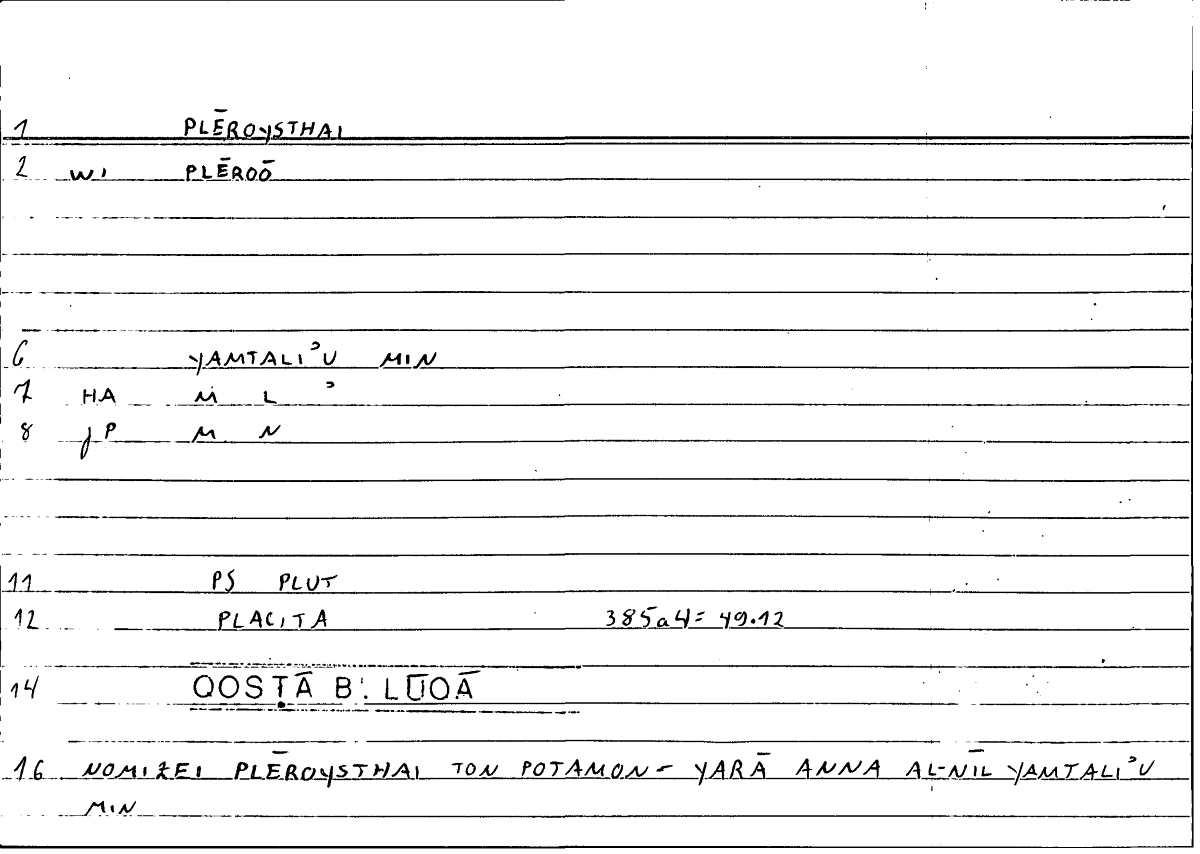 1 PLĒROYSTHAI
2 WI PLĒROŌ
6 YAMTALIʾU MIN
7 HA M L ʾ
8 JP M N
11 PS PLUT
12 PLACITA 385a4= 49.12
14 QOSṬĀ B. LŪQĀ
16 NOMIZEI PLĒROYSTHAI TON POTAMON - YARĀ ANNA AL-NĪL YAMTALIʾU
MIN